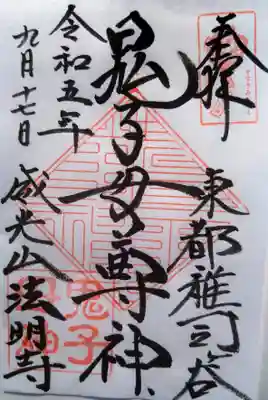 奉拝
東都雑司谷
鬼子母尊神
令和五年
九月十七日
威光山法明寺
鬼子
母神